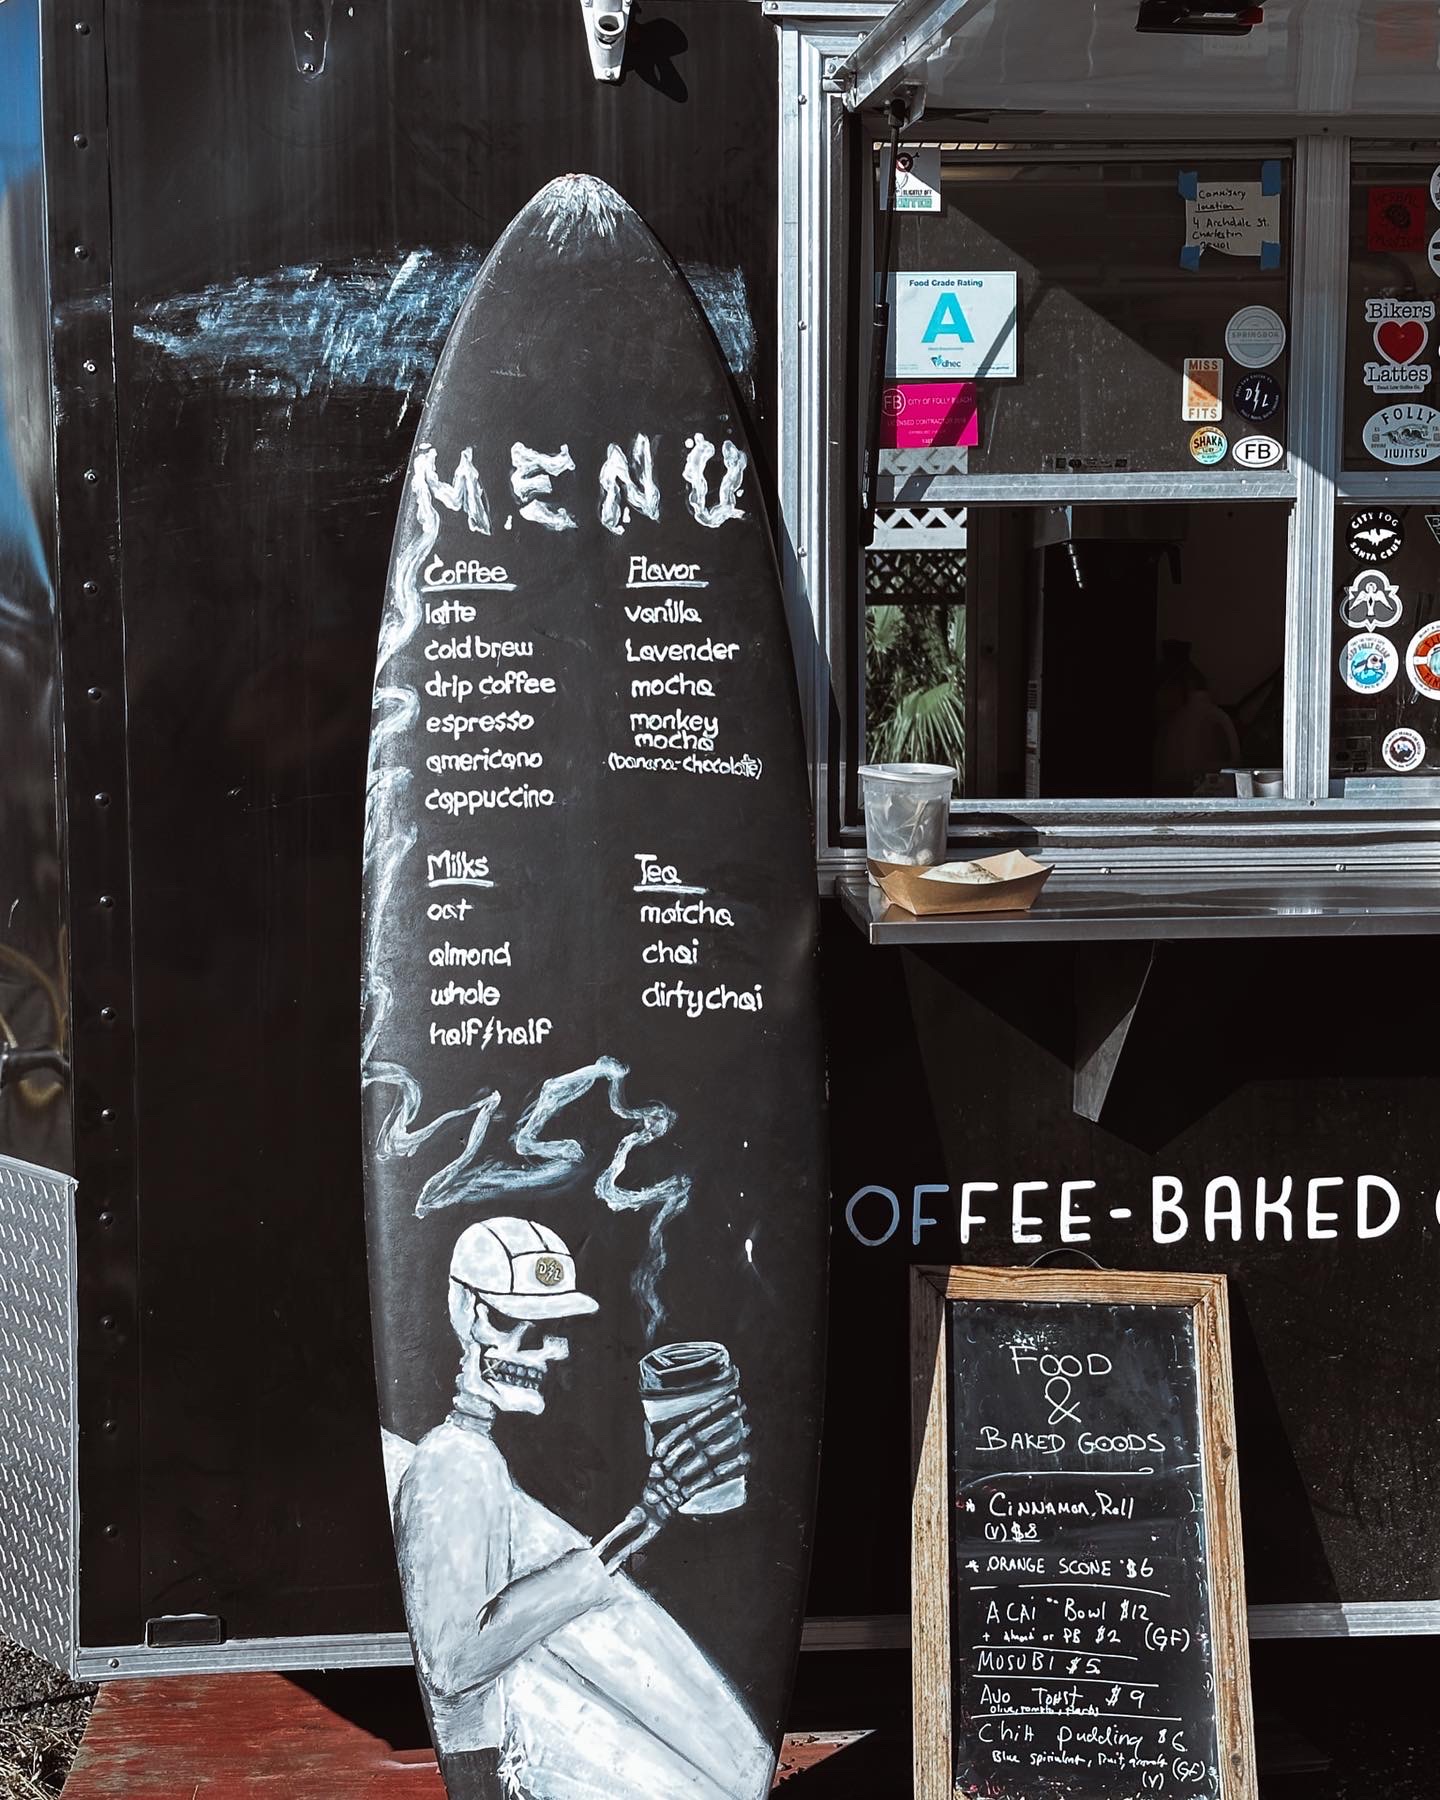 MENU
Coffee
latte
cold brew
drip coffee
espresso
americano
cappuccino
Flavor
vanilla
Lavender
mocha
monkey
mocha
(banana-chocolate)
Milks
oat
almond
whole
half/half
Tea
matcha
chai
dirty chai
D L
SLIGHTLY OFF
Commisary
location
4 Archdale St.
Charleston
Food Grade Rating
A
dhec
FB CITY OF FOLLY BEACH
SPRINGBOK
MISS
FITS
D L
SHAKA
FB
Bikers
Lattes
FOLLY
JIUJITSU
CITY FOG
SANTA CRUZ
OFFEE-BAKED
FOOD
&
BAKED GOODS
* CINNAMON Roll
(V) $8
* ORANGE SCONE $6
ACAi Bowl $12
+ almond or PB $2 (GF)
MUSUBI $5
AVO Toast $9
Chia pudding $6
Blue spirulina, fruit, granola (GF)
(V)